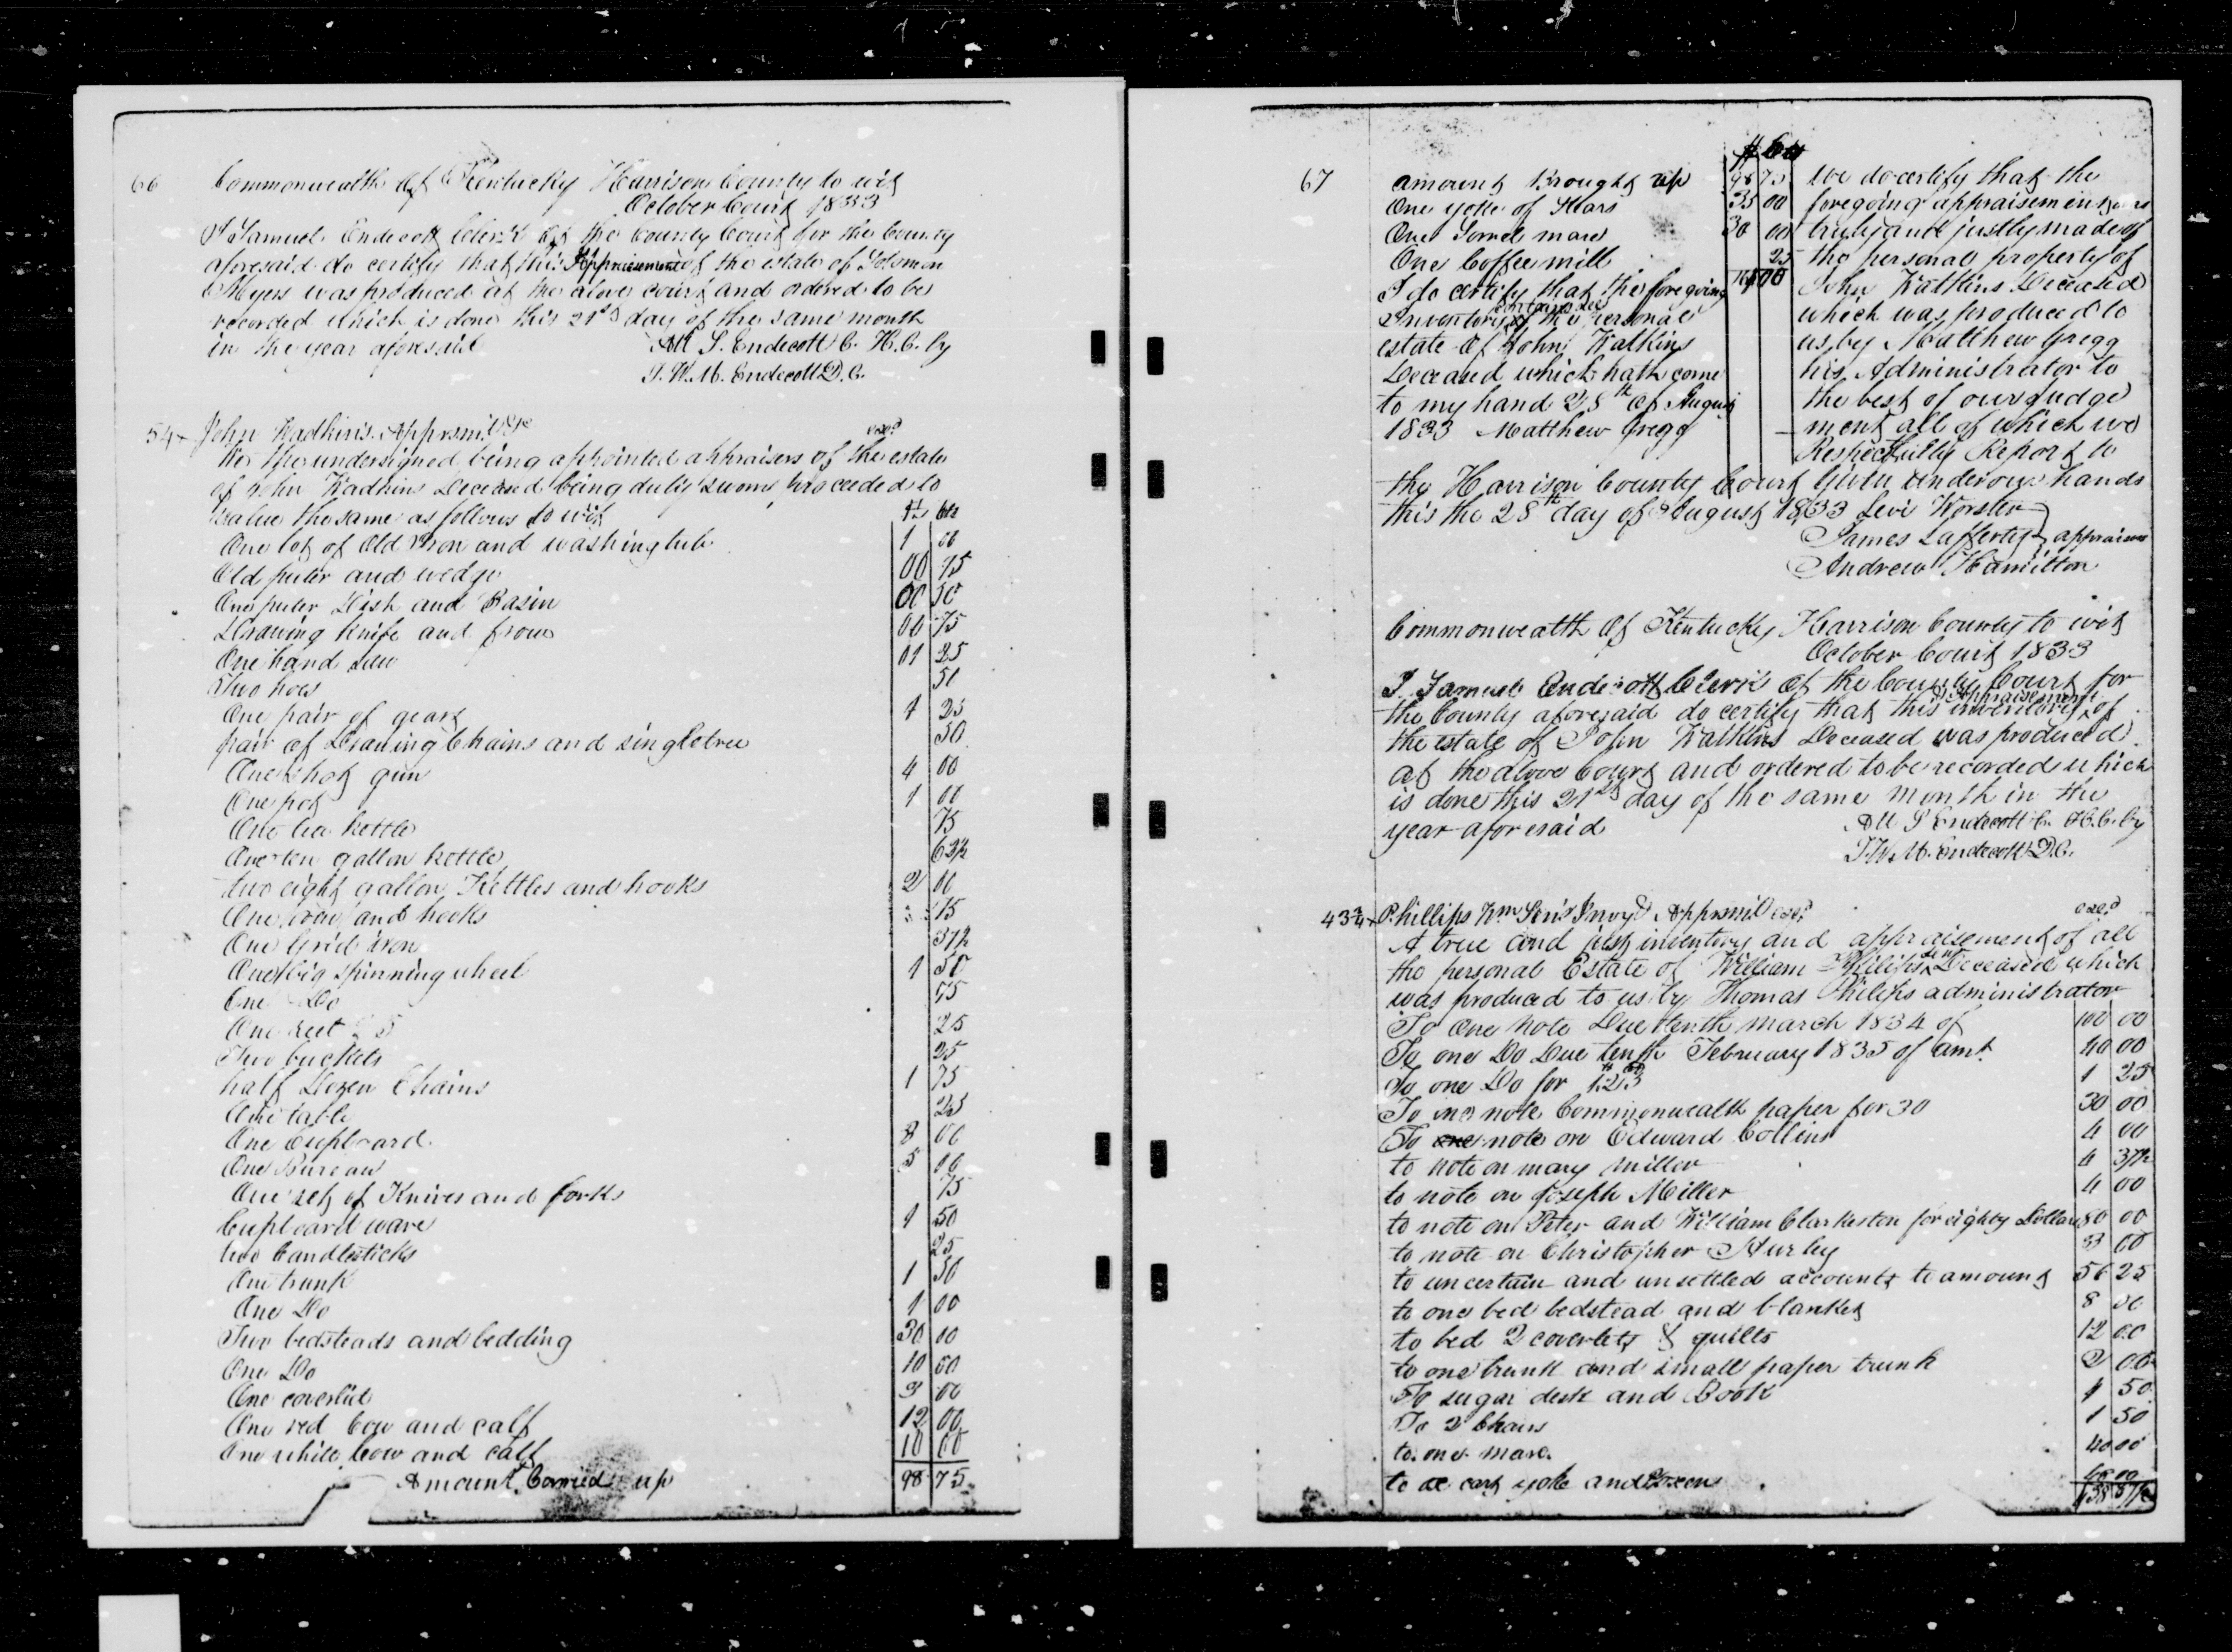 66
Commonwealth Of Kentucky Harrison County to wit
October Court 1833
I Samuel Endecott Clerk Of the County Court for the County
aforesaid do certify that this Appraisement of the estate of Solomon
Myers was produced at the above court and ordered to be
recorded which is done this 21st day of the same month
in the year aforesaid Att S. Endecott C. H. C. by
J. W. M. Endecott D. C.
54 John Wadkins Apprsmt &c exd
We the undersigned being appointed appraisers of the estate
of John Wadkins Deceased being duly sworn proceeded to
value the same as follows to wit $ cts
One lot of Old Iron and washing tub 1 00
Old puter and wedge 00 75
One puter Dish and Basin 00 50
Drawing Knife and frow 00 75
One hand saw 01 25
Two hoes 50
One pair of gears 1 25
pair of Drawing Chains and singletree 50
One shot gun 4 00
One pot 1 00
One tea kettle 75
One ten gallon kettle 62½
two eight gallon Kettles and hooks 2 00
One and hooks 75
One Grid iron 37½
One big spinning wheel 1 50
One Do 75
One 25
Two buckets 25
half Dozen Chairs 1 75
One table 25
One Cupboard 8 00
One Bureau 5 00
One set of Knives and forks 75
Cupboard ware 1 50
two Candlesticks 25
One trunk 1 50
One Do 1 00
Two bedsteads and bedding 30 00
One Do 10 00
One coverlid 3 00
One red Cow and calf 12 00
One white Cow and calf 10 00
Amount Carried up 98 75
67
$ Cts
amount Brought up 98 75
One yoke of Stears 35 00
One Sorrel mare 30 00
One Coffee mill 25
I do certify that the foregoing
Inventory contains all of the personal
estate Of John Watkins
Deceased which hath come
to my hand 28th of August
1833 Matthew Gregg
We do certify that the
foregoing appraisement was
truly and justly made of
the personal property of
John Watkins Deceased
which was produced to
us by Matthew Gregg
his Administrator to
the best of our judge
ment all of which we
Respectfully Report to
the Harrison County Court Given under our hands
this the 28th day of August 1833 Levi Worster
James Lafferty appraisers
Andrew Hamilton
Commonwealth Of Kentucky Harrison County to wit
October Court 1833
I Samuel Endecott Clerk Of the County Court for
the County aforesaid do certify that this inventory & Appraisement of
the estate of John Watkins Deceased was produced
at the above Court and ordered to be recorded which
is done this 21st day of the same month in the
year aforesaid Att S Endecott C. H. C. by
J. W. M. Endecott D. C.
43 Phillips Wm Senr Invy & Apprsmt exd
A true and just inventory and appraisement of all
the personal Estate of William Philips Senr Deceased which
was produced to us by Thomas Philips administrator
To One Note Due tenth march 1834 of 100 00
To one Do Due tenth February 1835 of amt 40 00
To one Do for 1.25 1 25
To one note Commonwealth paper for 30 30 00
To one note on Edward Collins 4 00
to note on mary miller 4 37½
to note on Joseph Miller 4 00
to note on Peter and William Clarkeston for eighty Dollars 80 00
to note on Christopher Hurley 3 00
to uncertain and unsettled accounts to amount 56 25
to one bed bedstead and blanket 8 00
to bed 2 coverlets & quilts 12 00
to one trunk and small paper trunk 2 00
To sugar desk and Book 1 50
To 2 Chairs 1 50
to one mare 40 00
to cart yoke and